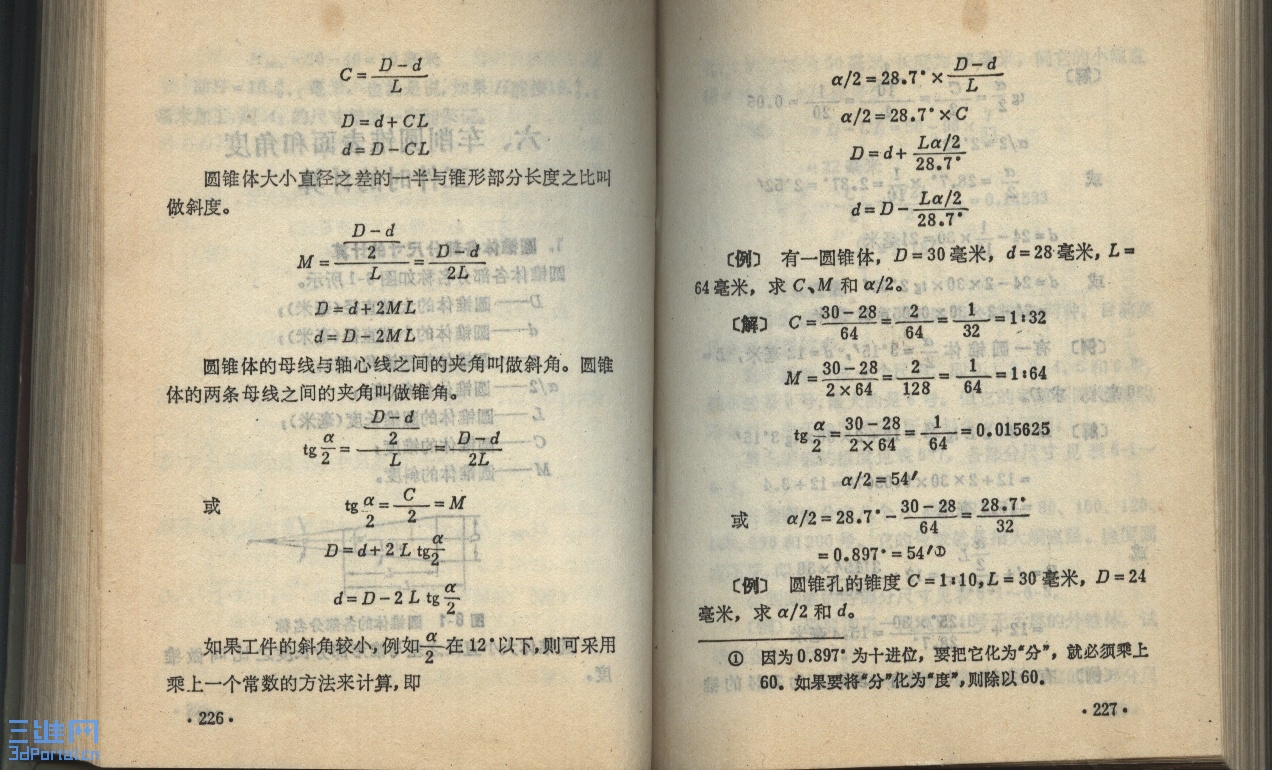 C = (D-d)/L
D=d+CL
d=D-CL
圆锥体大小直径之差的一半与锥形部分长度之比叫
做斜度。
M = ((D-d)/2)/L = (D-d)/2L
D=d+2ML
d=D-2ML
圆锥体的母线与轴心线之间的夹角叫做斜角。圆锥
体的两条母线之间的夹角叫做锥角。
tg α/2 = ((D-d)/2)/L = (D-d)/2L
或 tg α/2 = C/2 = M
D=d+2 L tg α/2
d=D-2 L tg α/2
如果工件的斜角较小,例如 α/2 在12°以下,则可采用
乘上一个常数的方法来计算,即
·226·
α/2=28.7°× (D-d)/L
α/2=28.7°×C
D=d+ (Lα/2)/28.7°
d=D- (Lα/2)/28.7°
〔例〕 有一圆锥体, D=30毫米, d=28毫米, L=
64毫米, 求 C、M 和 α/2。
〔解〕 C= (30-28)/64 = 2/64 = 1/32 =1:32
M= (30-28)/(2×64) = 2/128 = 1/64 =1:64
tg α/2 = (30-28)/(2×64) = 1/64 =0.015625
α/2=54′
或 α/2=28.7°- (30-28)/64 = 28.7°/32
=0.897°=54′①
〔例〕 圆锥孔的锥度 C=1:10,L=30毫米, D=24
毫米, 求 α/2 和 d。
① 因为0.897°为十进位, 要把它化为“分”, 就必须乘上
60。如果要将“分”化为“度”,则除以60。
·227·
三维网
3dPortal.cn